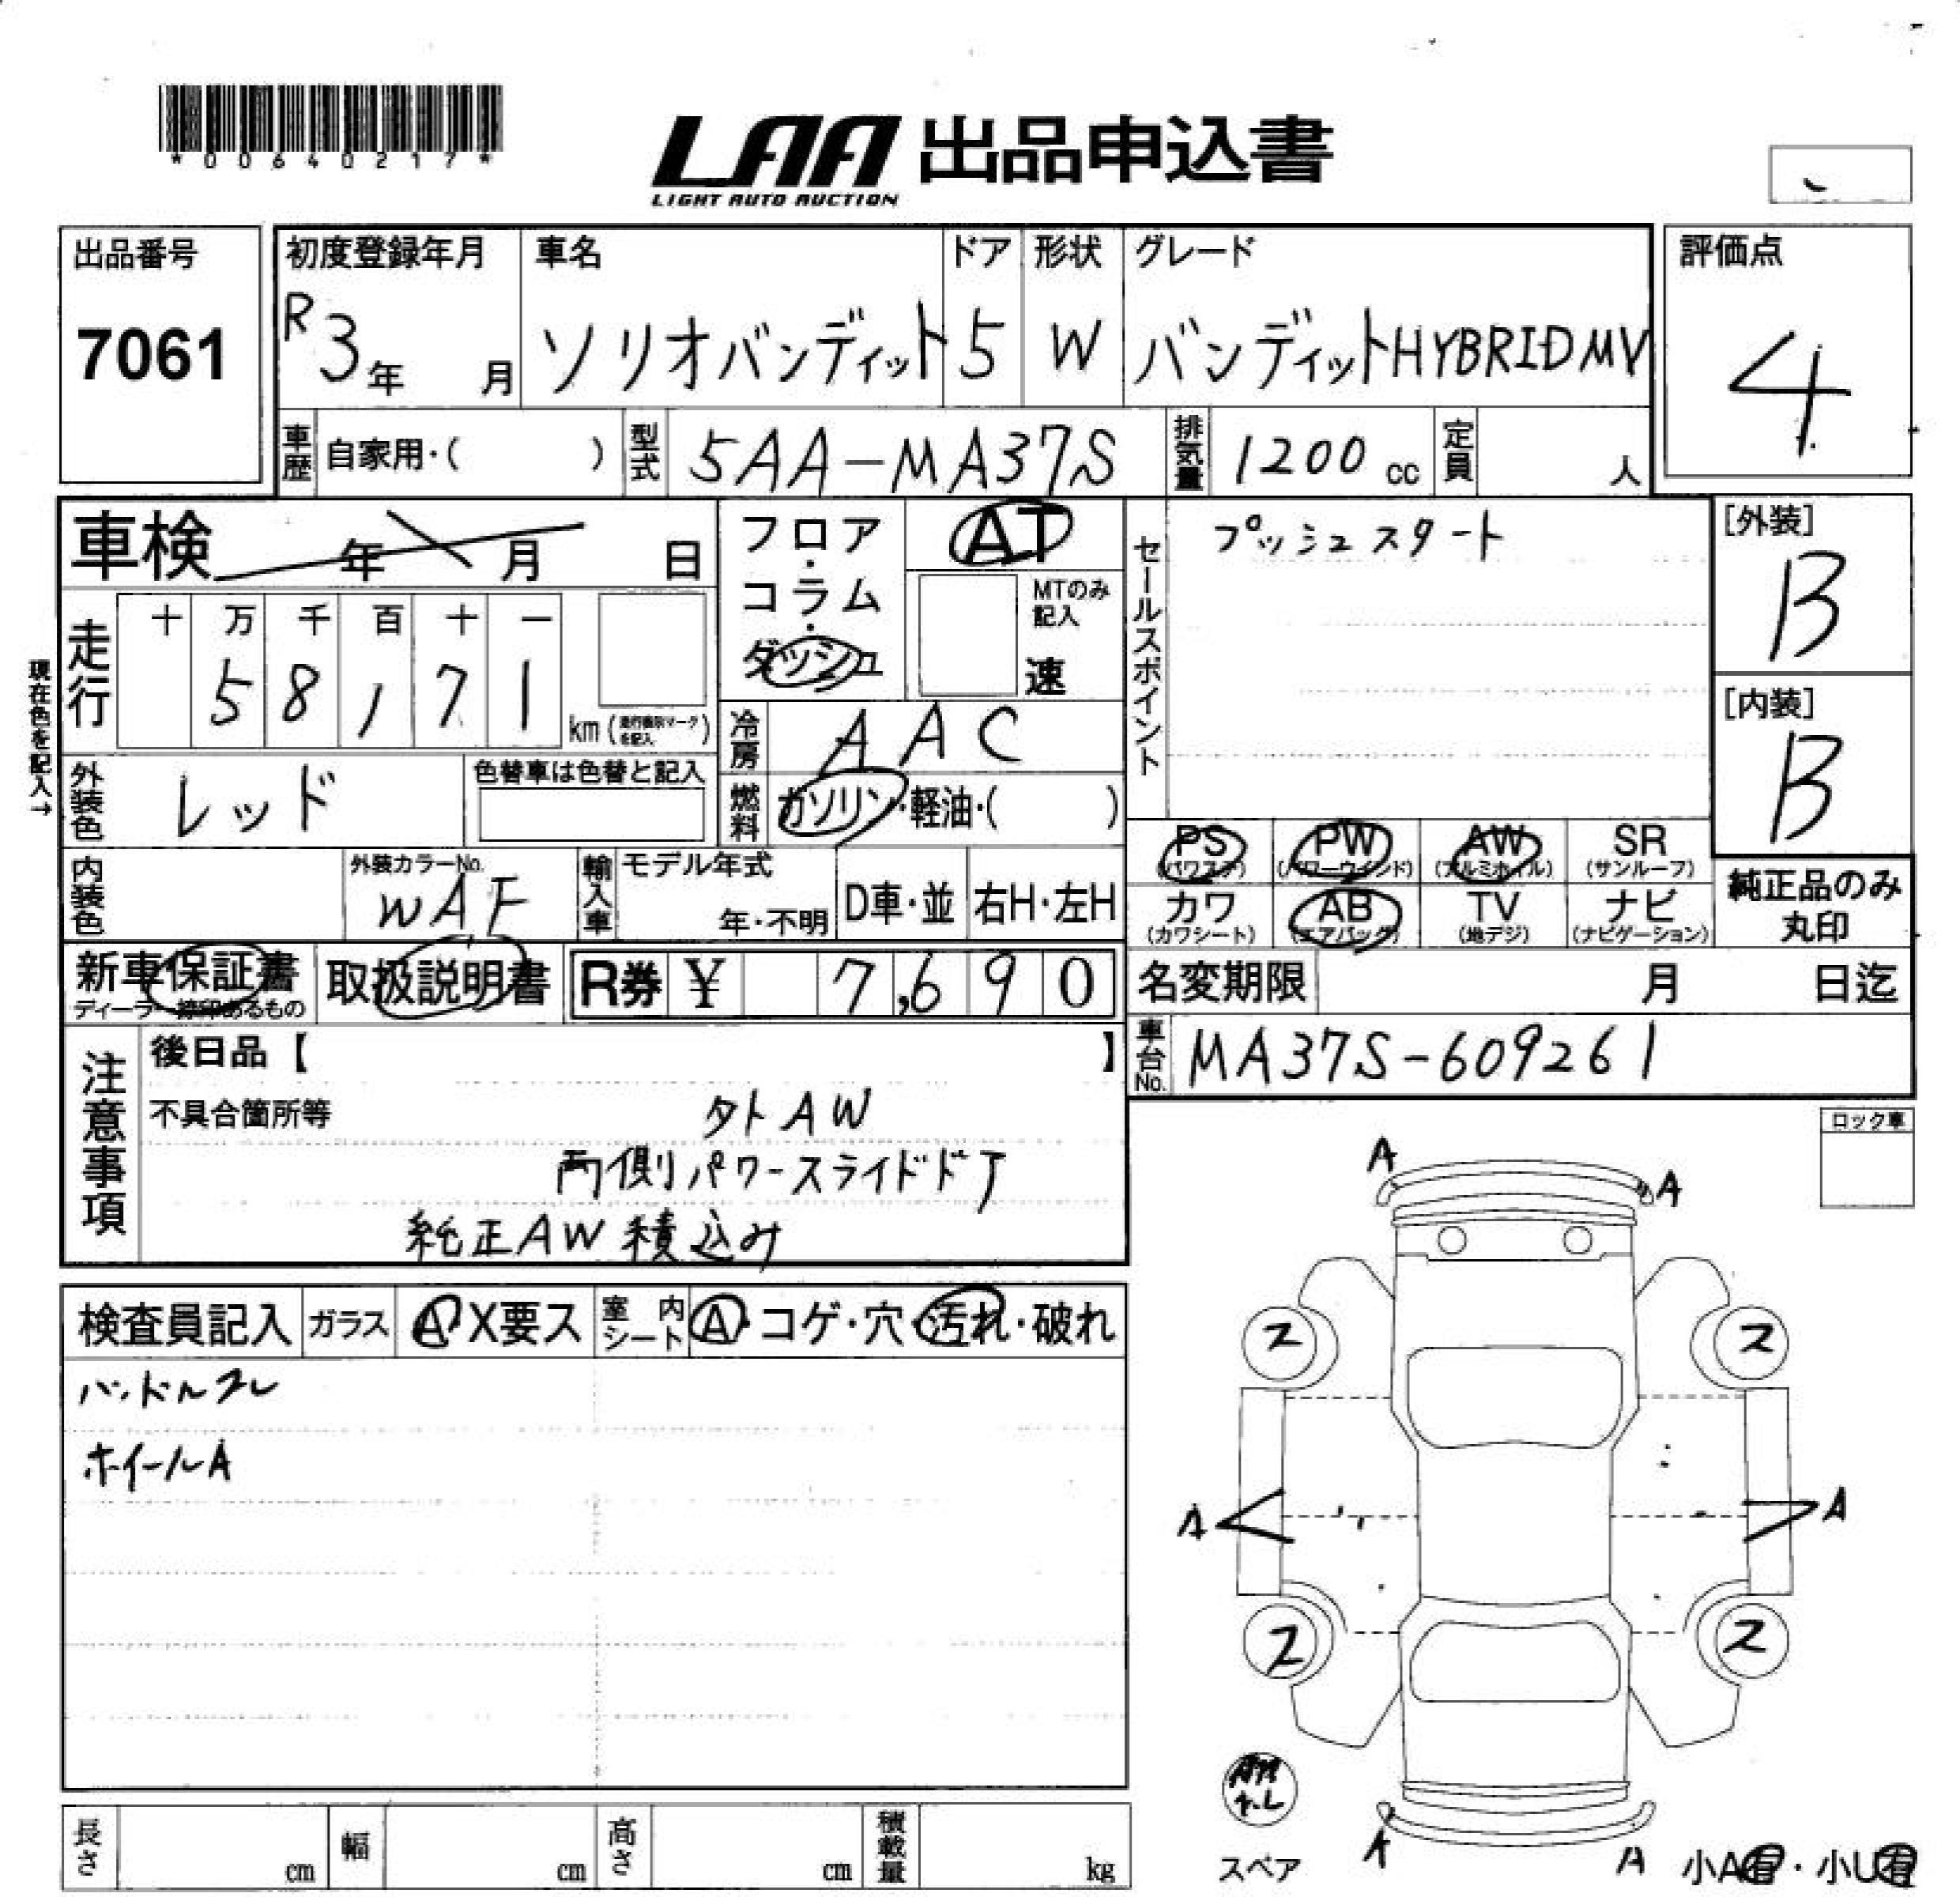 *00640217*
LAA 出品申込書
LIGHT AUTO AUCTION
出品番号
7061
初度登録年月
R3年 月
車名
ソリオバンディット
ドア
5
形状
W
グレード
バンディットHYBRIDMV
評価点
4
車歴 自家用・( )
型式 5AA-MA37S
排気量 1200 cc
定員 人
車検 年 月 日
フロア・コラム・ダッシュ
AT
MTのみ記入
速
セールスポイント
プッシュスタート
[外装]
B
[内装]
B
現在色を記入→
走行
十 万 千 百 十 一
5 8 , 7 1
km (走行機券マークを記入)
冷房 AAC
外装色 レッド
色替車は色替と記入
燃料 ガソリン・軽油・( )
内装色
外装カラーNo.
WAF
輸入車
モデル年式
年・不明
D車・並
右H・左H
PS (パワステ)
PW (パワーウインド)
AW (アルミホイル)
SR (サンルーフ)
カワ (カワシート)
AB (エアバッグ)
TV (地デジ)
ナビ (ナビゲーション)
純正品のみ
丸印
新車保証書
ディーラー捺印あるもの
取扱説明書
R券 ¥ 7,690
名変期限 月 日迄
車台No. MA37S-609261
注意事項
後日品【 】
不具合箇所等
外AW
両側パワースライドドア
純正AW積込み
ロック車
検査員記入
ガラス A X要ス
室内シート A・コゲ・穴・汚れ・破れ
ハンドルスレ
ホイールA
A
A
ス
ス
A
A
ス
ス
A
A
スペア
小A有・小U有
長さ cm
幅 cm
高さ cm
積載量 kg